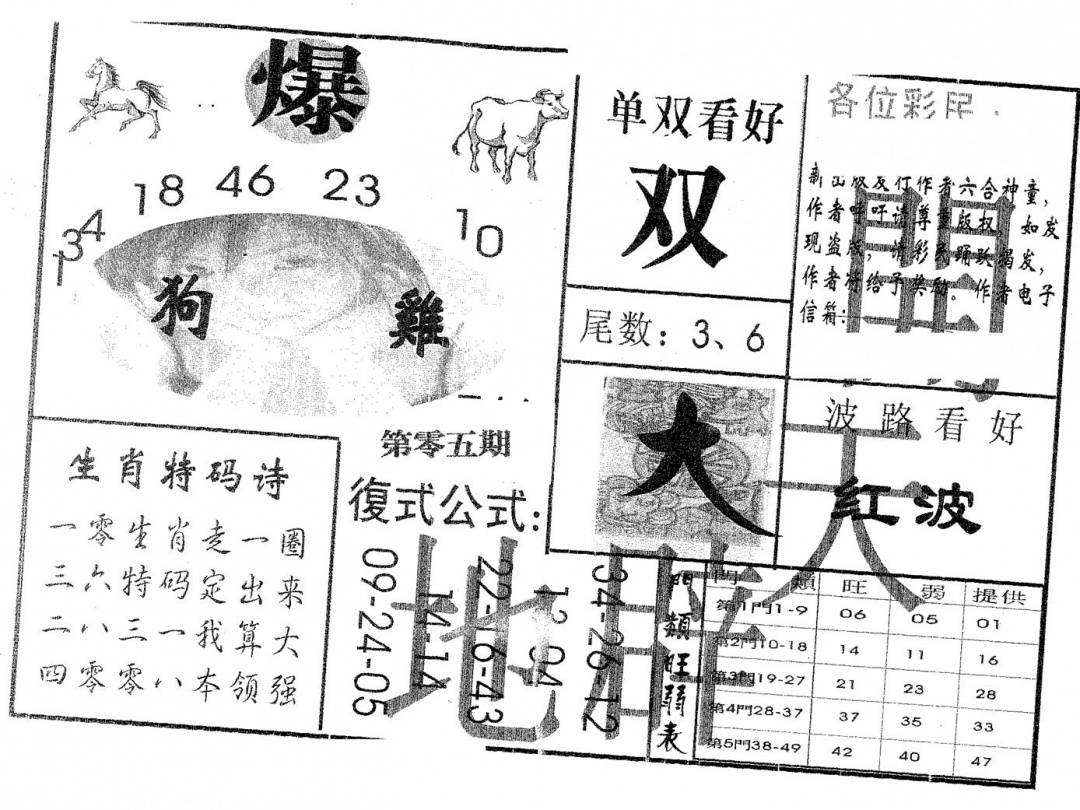 爆
18 46 23
34
1
10
狗 雞
单双看好
双
尾数：3、6
各位彩民
作者六合神童，
作者呼吁请尊重版权，如发
现盗版，请彩民踊跃揭发，
作者将给予奖励。作者电子
信箱：
大
波路看好
红波
生肖特码诗
一零生肖走一圈
三六特码定出来
二八三一我算大
四零零八本领强
第零五期
復式公式：
09-24-05
14-14
22-16-43
34-26-12
門類旺弱表
門類 旺 弱 提供
第1門1-9 06 05 01
第2門10-18 14 11 16
第3門19-27 21 23 28
第4門28-37 37 35 33
第5門38-49 42 40 47